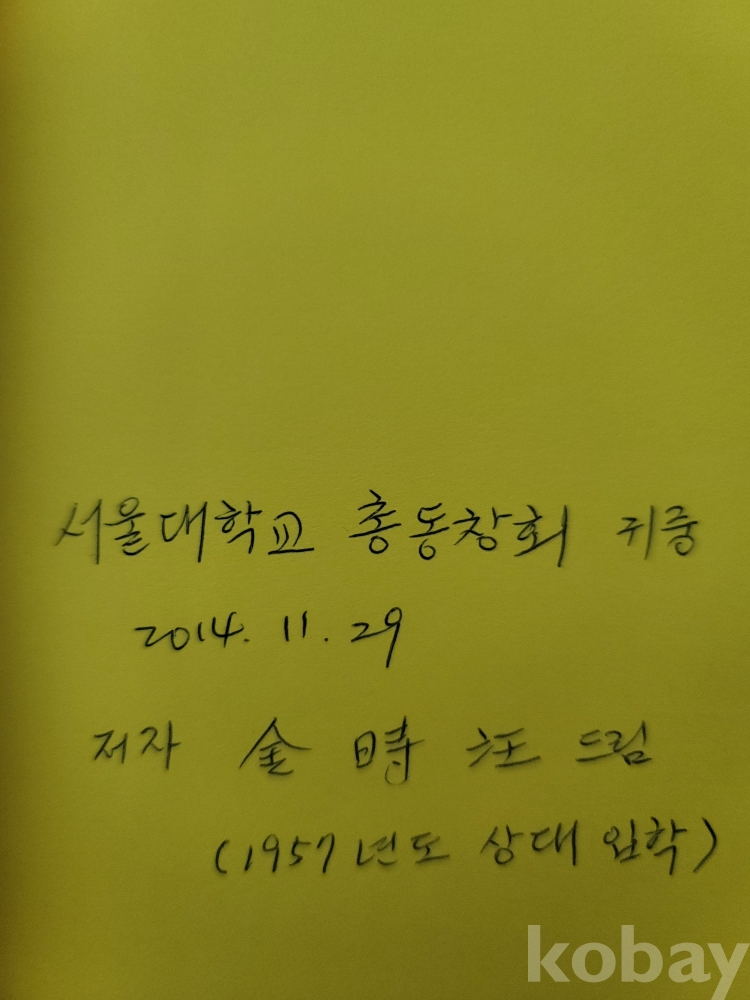 서울대학교 총동창회 귀중
2014. 11. 29
저자 金 時 汪 드림
(1957년도 상대 입학)
kobay